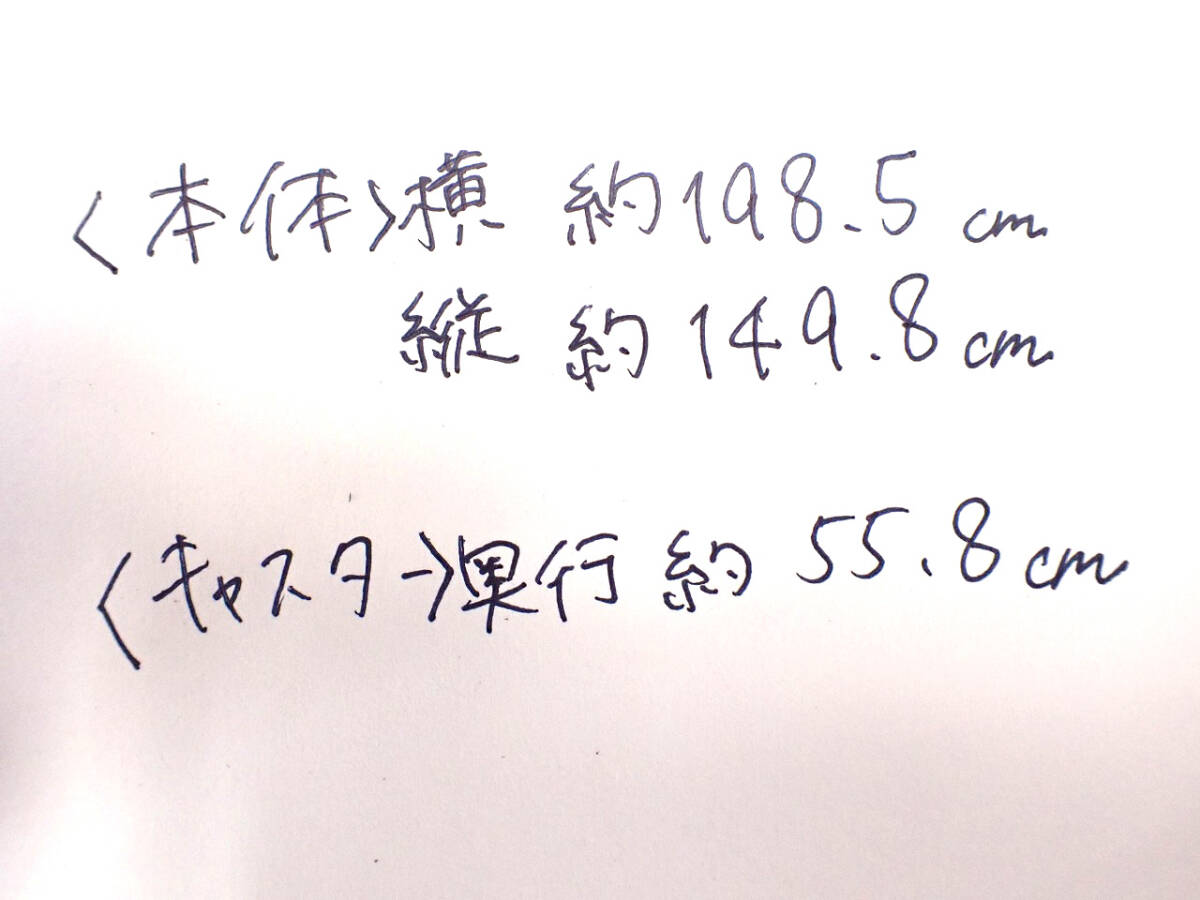 <本体>横 約198.5cm
縦 約149.8cm
<キャスター>奥行 約 55.8cm